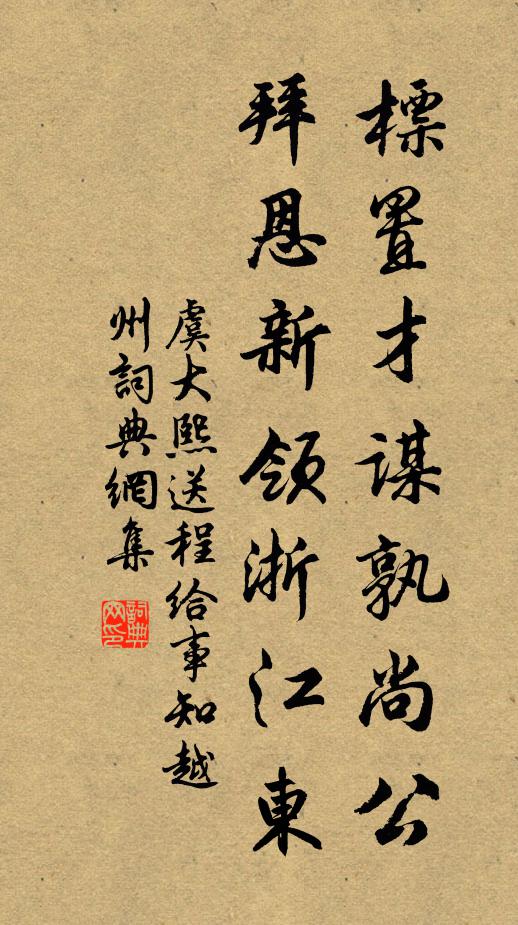 標置才謀孰尚公
拜恩新領浙江東
虞大熙送程給事知越
州詞典網集
詞典
网印